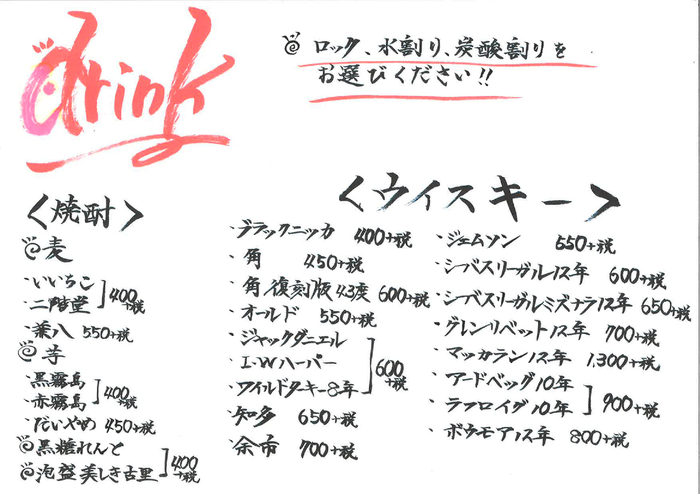 drink
ロック、水割り、炭酸割りを
お選びください!!
<焼酎>
麦
・いいちこ
・二階堂
400+税
・兼八 550+税
芋
・黒霧島
・赤霧島
400+税
・だいやめ 450+税
黒糖れんと
泡盛美しき古里
400+税
<ウイスキー>
・ブラックニッカ 400+税
・角 450+税
・角/復刻版43度 600+税
・オールド 550+税
・ジャックダニエル
・I・Wハーパー
・ワイルドターキー8年
600+税
・知多 650+税
・余市 700+税
・ジェムソン 550+税
・シーバスリーガル12年 600+税
・シーバスリーガルミズナラ12年 650+税
・グレンリベット12年 700+税
・マッカラン12年 1,300+税
・アードベッグ10年
・ラフロイグ10年
900+税
・ボウモア12年 800+税